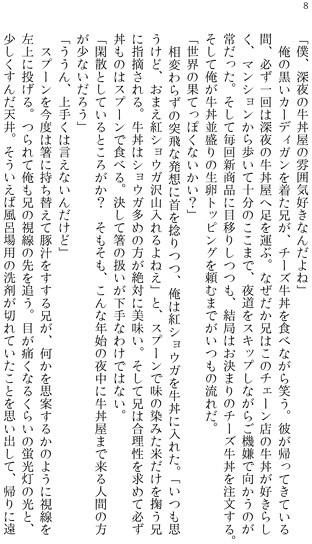 8
「僕、深夜の牛丼屋の雰囲気好きなんだよね」
　俺の黒いカーディガンを着た兄が、チーズ牛丼を食べながら笑う。彼が帰ってきている
間、必ず一回は深夜の牛丼屋へ足を運ぶ。なぜだか兄はこのチェーン店の牛丼が好きらし
く、マンションから歩いて十分のここまで、夜道をスキップしながらご機嫌で向かうのが
常だった。そして毎回新商品に目移りしつつも、結局はお決まりのチーズ牛丼を注文する。
そして俺が牛丼並盛りの生卵トッピングを頼むまでがいつもの流れだ。
「世界の果てっぽくないかい？」
　相変わらずの突飛な発想に首を捻りつつ、俺は紅ショウガを牛丼に入れた。「いつも思
うけど、おまえ紅ショウガ沢山入れるよねえ」と、スプーンで味の染みた米だけを掬う兄
に指摘される。牛丼はショウガ多めの方が絶対に美味い。そして兄は合理性を求めて必ず
丼ものはスプーンで食べる。決して箸の扱いが下手なわけではない。
「閑散としているところがか？　そもそも、こんな年始の夜中に牛丼屋まで来る人間の方
が少ないだろう」
「ううん、上手くは言えないんだけど」
　スプーンを今度は箸に持ち替えて豚汁をすする兄が、何かを思案するかのように視線を
左上に投げる。つられて俺も兄の視線の先を追う。目が痛くなるくらいの蛍光灯の光と、
少しくすんだ天井。そういえば風呂場用の洗剤が切れていたことを思い出して、帰りに遠